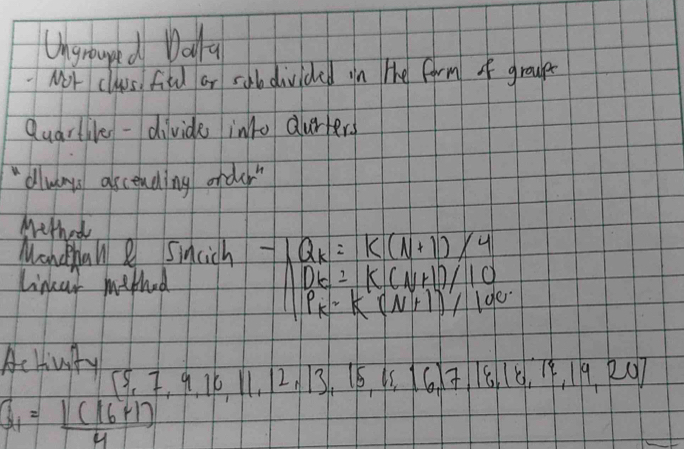 Ungrouped Data
- Not classified or subdivided in the form of groups
Quartiles - divide into Qurters
"always ascending order"
Method
Mendenhall & Sincich - Qk = K(N+1)/4
Linear method Dk = K(N+1)/10
Pk = K(N+1)/100.
Activity
[5, 7, 9, 10, 11, 12, 13, 15, 15, 16, 17, 18, 18, 19, 20]
Q1 = 1(16+1)
4